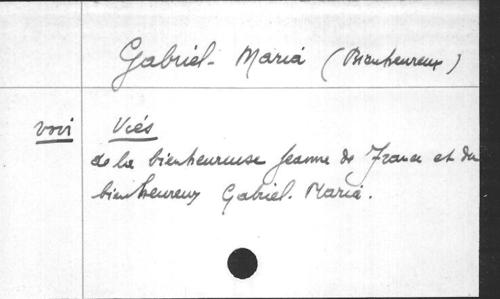 Gabriel-Maria (Bienheureux)
voir Vies
de la bienheureuse Jeanne de France et du
bienheureux Gabriel-Maria.